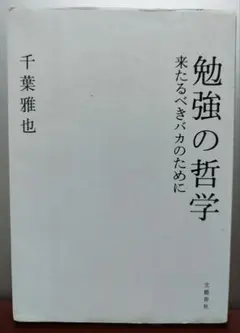 勉強の哲学
来たるべきバカのために
千葉雅也
文藝春秋